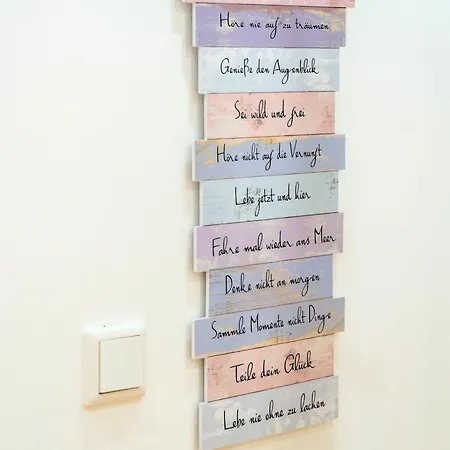 Höre nie auf zu träumen
Genieße den Augenblick
Sei wild und frei
Höre nicht auf die Vernunft
Lebe jetzt und hier
Fahre mal wieder ans Meer
Denke nicht an morgen
Sammle Momente nicht Dinge
Teile dein Glück
Lebe nie ohne zu lachen